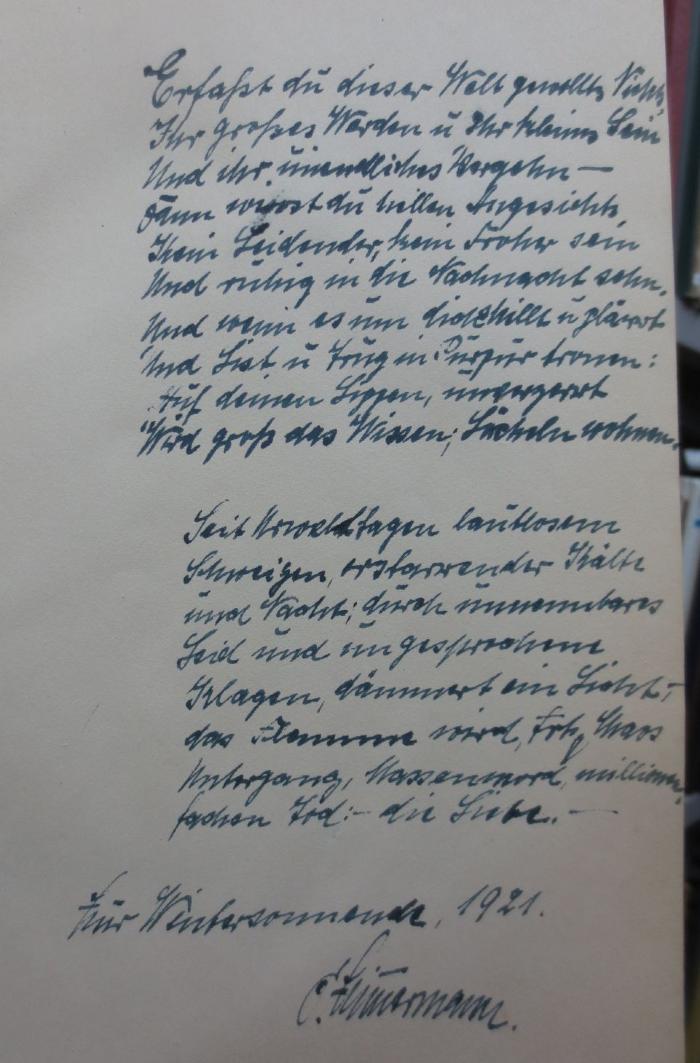 Erfaßt du dieser Welt gewollts Nichts,
Ihr großes Werden u Ihr kleines Sein
Und ihr unendliches Vergehn —
Dann wirst du hellen Angesichts
Kein Leidender, kein Froher sein
Und ruhig in die Nachnacht sehn.
Und wenn es um dich schillt u plärrt
Und List u Trug in Purpur tronen:
Auf deinen Lippen, unverzerrt
Wird groß das Wissen; Lächeln wohnen.
Seit Urwelttagen lautlosem
Schweigen, erstarrender Kälte
und Nacht; durch unnennbares
Leid und ungesprochene
Klagen, dämmert ein Licht,
das Flamme wird, trotz Chaos
Untergang, Massenmord, millionen-
fachen Tod: – die Liebe. —
Zur Wintersonnende, 1921.